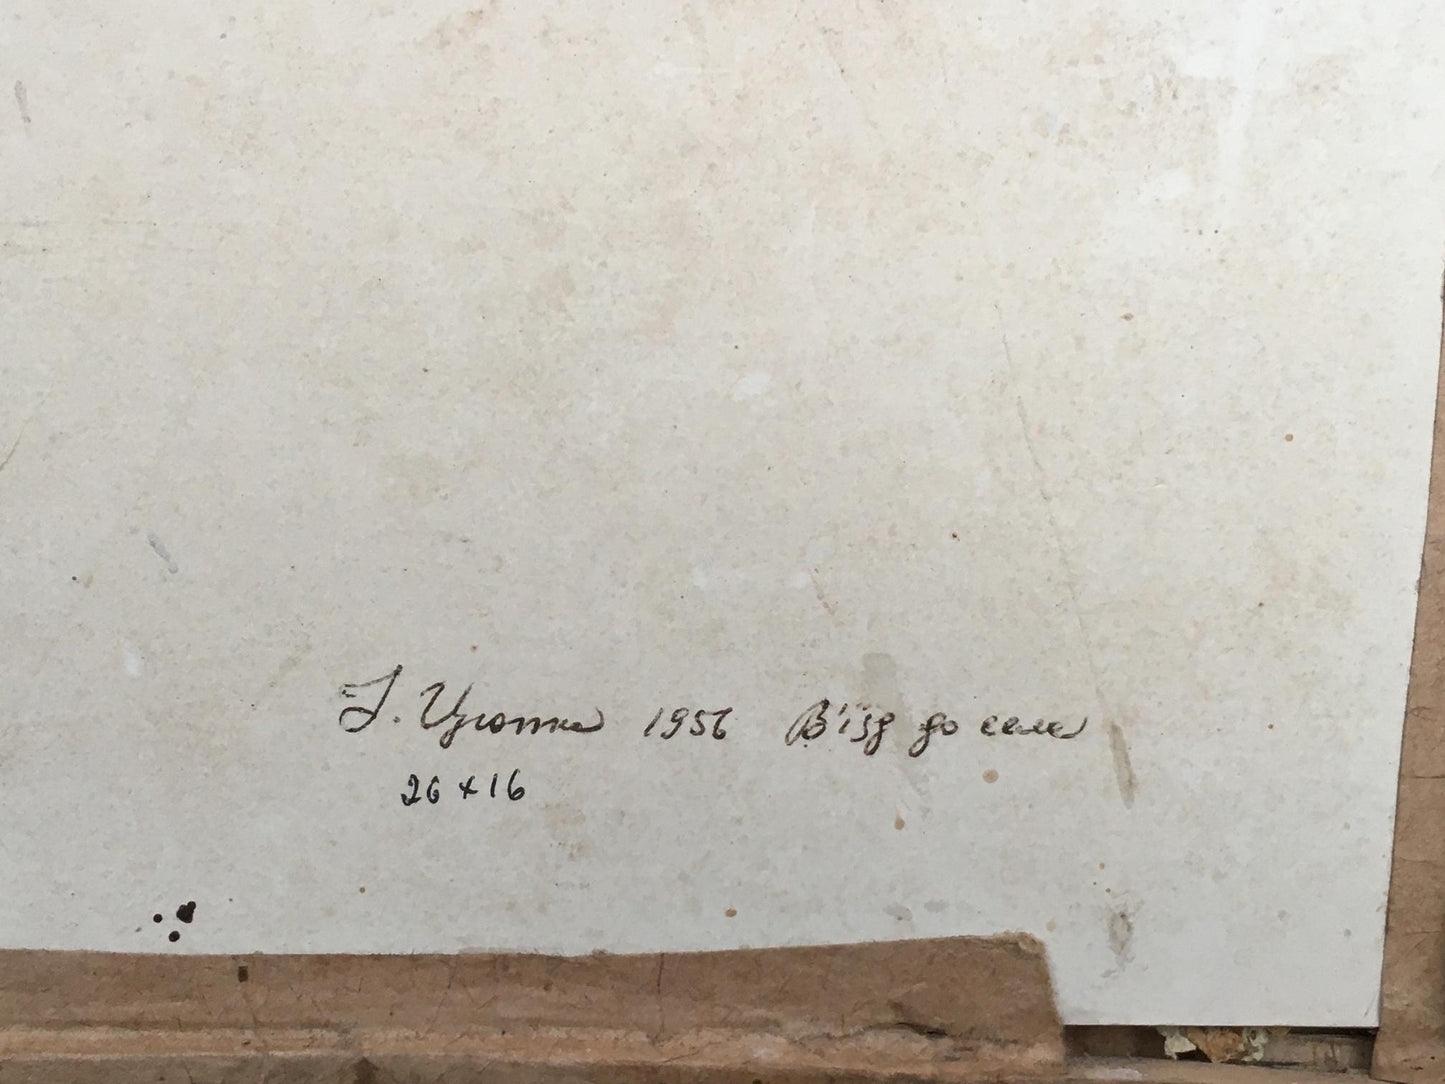 І. Цюпка 1956 В'їзд до села
26 x 16